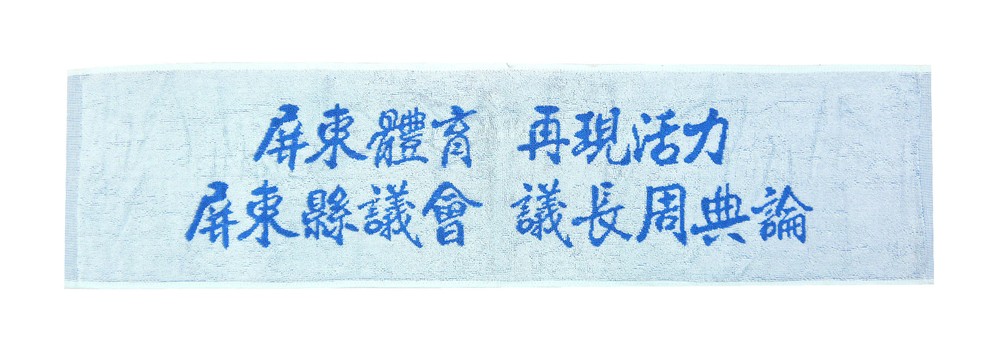 屏東體育 再現活力
屏東縣議會 議長周典論